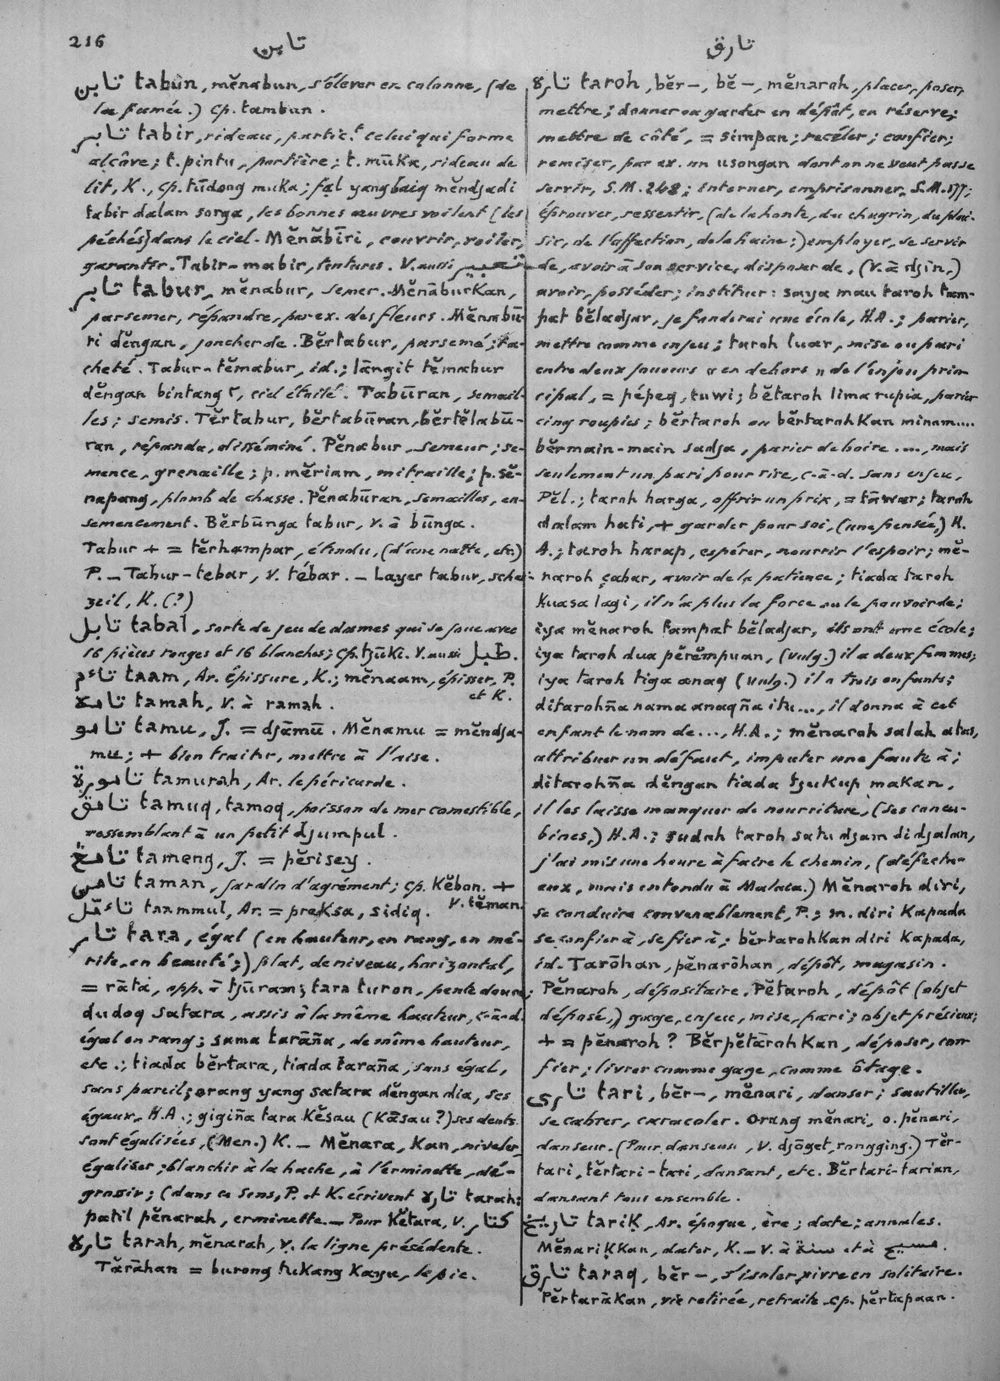 216
تابن
تارق
تابن tabun, mĕnabun, s'élever en colonne, (de
la fumée.) Cp. tambun.
تابر tabir, rideau, partic.t celui qui forme
alcôve; t. pintu, portière; t. mūka, rideau de
lit, K., cp. tūdong muka; faḷ yang baiq mĕndjadi
tabir dalam sorga, les bonnes œuvres voilent (les
péchés) dans le ciel. Mĕnābīri, couvrir, voiler,
garantir. Tabir-mabir, tentures. V. aussi تعبير
تابر tabur, mĕnabur, semer. MĕnāburKan,
parsemer, répandre, par ex. des fleurs. Mĕnabū-
ri dĕngan, joncher de. Bĕrtabur, parsemé; ta-
cheté. Tabur-tĕmabur, id.; lāngit tĕmabur
dĕngan bintang ٢, ciel étoilé. Tabūran, semail-
les; semis. Tĕrtabur, bĕrtabūran, bĕrtĕlabū-
ran, répandu, disséminé. Pĕnabur, semeur; se-
mence, grenaille; p. mĕriam, mitraille; p. sĕ-
napang, plomb de chasse. Pĕnabūran, semailles, en-
semencement. Bĕrbūnga tabur, v. à būnga.
Tabur + = tĕrhampar, étendu, (d'une natte, etc.)
P. — Tabur-tebar, V. tébar. — Layer tabur, sche
zeil, K. (?)
تابل tabal, sorte de jeu de dames qui se joue avec
16 pièces rouges et 16 blanches; Cp. tjūki. V. aussi طبل.
تاءم taam, Ar. épissure, K.; mĕnaam, épisser, P.
et K.
تامه tamah, V. à ramah.
تامو tamu, J. = djāmū. Mĕnamu = mĕndja-
mu; + bien traiter, mettre à l'aise.
تامورة tamurah, Ar. le péricarde.
تاموق tamuq, tamoq, poisson de mer comestible,
ressemblant à un petit djumpul.
تامڠ tameng, J. = pĕrisey.
تامن taman, jardin d'agrément; cp. Kĕbon. +
V. tĕman.
تاءمّل taammul, Ar. = preKsa, sidiq.
تار tara, égal (en hauteur, en rang, en mé-
rite, en beauté;) plat, de niveau, horizontal,
= rāta, opp. à tjūram; tara turon, pente douce;
dudoq satara, assis à la même hauteur, c-à-d.
égal en rang; sama tarāña, de même hauteur,
etc.; tiada bĕrtara, tiada taraña, sans égal,
sans pareil; orang yang satara dĕngan dia, ses
égaux, H.A.; gigiña tara Kĕsau (Kāsau?) ses dents
sont égalisées, (Men.) K. — Mĕnara, Kan, niveler,
égaliser; blanchir à la hache, à l'erminette, dé-
grossir; (dans ce sens, P. et K. écrivent تاره tarah;
patil pĕnarah, erminette. — Pour Kĕtara, V. كتار
تاره tarah, mĕnarah, V. la ligne précédente.
Tārāhan = burong tuKang Kayu, le pic.
تاره taroh, bĕr-, bĕ-, mĕnaroh, placer, poser,
mettre; donner ou garder en dépôt, en réserve;
mettre de côté, = simpan; recéler; confier;
remiser, par ex. un usongan dont on ne veut pas se
servir, S.M. 248; interner, emprisonner, S.M. 577;
éprouver, ressentir, (de la honte, du chagrin, du plai-
sir, de l'affection, de la haine;) employer, se servir
de, avoir à son service, disposer de, (V. à djin,)
avoir, posséder; instituer: saya mau taroh tam-
pat bĕladjar, je fonderai une école, H.A.; parier,
mettre comme enjeu; taroh luar, mise ou pari
entre deux joueurs "en dehors" de l'enjeu prin-
cipal, = pépeq, tuwi; bĕtaroh lima rupia, parier
cinq roupies; bĕrtaroh ou bĕrtarohKan minum....
bĕrmain-main sadja, parier de boire...., mais
seulement un pari pour rire, c-à-d. sans enjeu,
Pĕl.; taroh harga, offrir un prix, = tāwar; taroh
dalam hati, + garder pour soi, (une pensée,) H.
A.; taroh harap, espérer, nourrir l'espoir; mĕ-
naroh çabar, avoir de la patience; tiada taroh
Kuasa lagi, il n'a plus la force ou le pouvoir de;
iya mĕnaroh tampat bĕladjar, ils ont une école;
iya taroh dua pĕrĕmpuan, (vulg.) il a deux femmes;
iya taroh tiga anaq (vulg.) il a trois enfants;
ditarohña nama anaqña itu..., il donna à cet
enfant le nom de..., H.A.; mĕnaroh salah atas,
attribuer un défaut, imputer une faute à;
ditarohña dĕngan tiada tjuKup makan,
il les laisse manquer de nourriture, (ses concu-
bines,) H.A.; sudah taroh satu djam di djalan,
j'ai mis une heure à faire le chemin, (défectu-
eux, mais entendu à Malaca.) Mĕnaroh diri,
se conduire convenablement, P.; m. diri Kapada
se confier à, se fier à; bĕrtarohKan diri Kapada,
id. Tarōhan, pĕnarōhan, dépôt, magasin.
Pĕnaroh, dépositaire. Pĕtaroh, dépôt (objet
déposé,) gage, enjeu, mise, pari; objet précieux;
+ = pĕnaroh? BĕrpĕtārohKan, déposer, con
fier; livrer comme gage, comme ôtage.
تاري tari, bĕr-, mĕnari, danser; sautiller,
se cabrer, caracoler. Orang mĕnari, o. pĕnari,
danseur. (Pour danseuse, V. djōget, rongging.) Tĕr-
tari, tĕrtari-tari, dansant, etc. Bĕrtari-tarian,
dansant tous ensemble.
تاريخ tariK, Ar. époque, ère; date; annales.
MĕnariKKan, dater, K. — V. à سنة et à مسيح.
تارق taraq, bĕr-, s'isoler, vivre en solitaire.
PĕrtarāKan, vie retirée, retraite. Cp. pĕrtapaan.